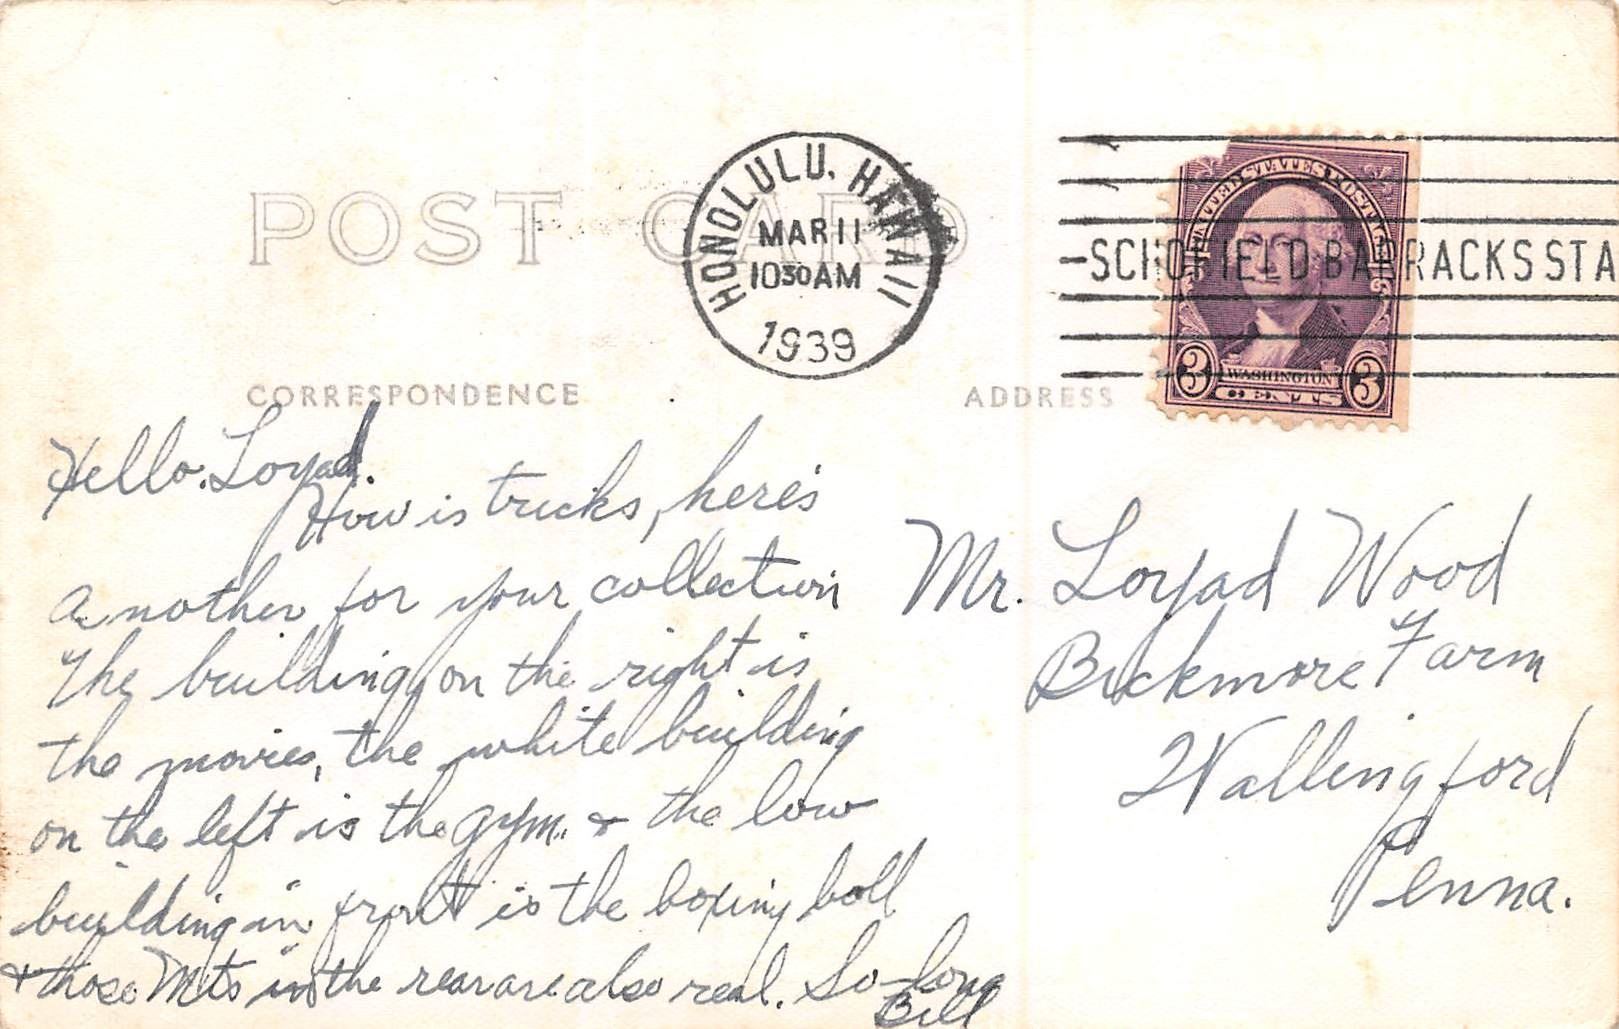 POST CARD
HONOLULU, HAWAII
MAR 11
10 30 AM
1939
-SCHOFIELD BARRACKS STA
UNITED STATES POSTAGE
3 WASHINGTON 3
CENTS
CORRESPONDENCE
ADDRESS
Hello Loyad.
How is tricks, here's
another for your collection
The building on the right is
the movies, the white building
on the left is the gym. & the low
building in front is the boxing boll
& those Mts in the rear are also real. So-long
Bill
Mr. Loyad Wood
Bickmore Farm
Wallingford
Penna.